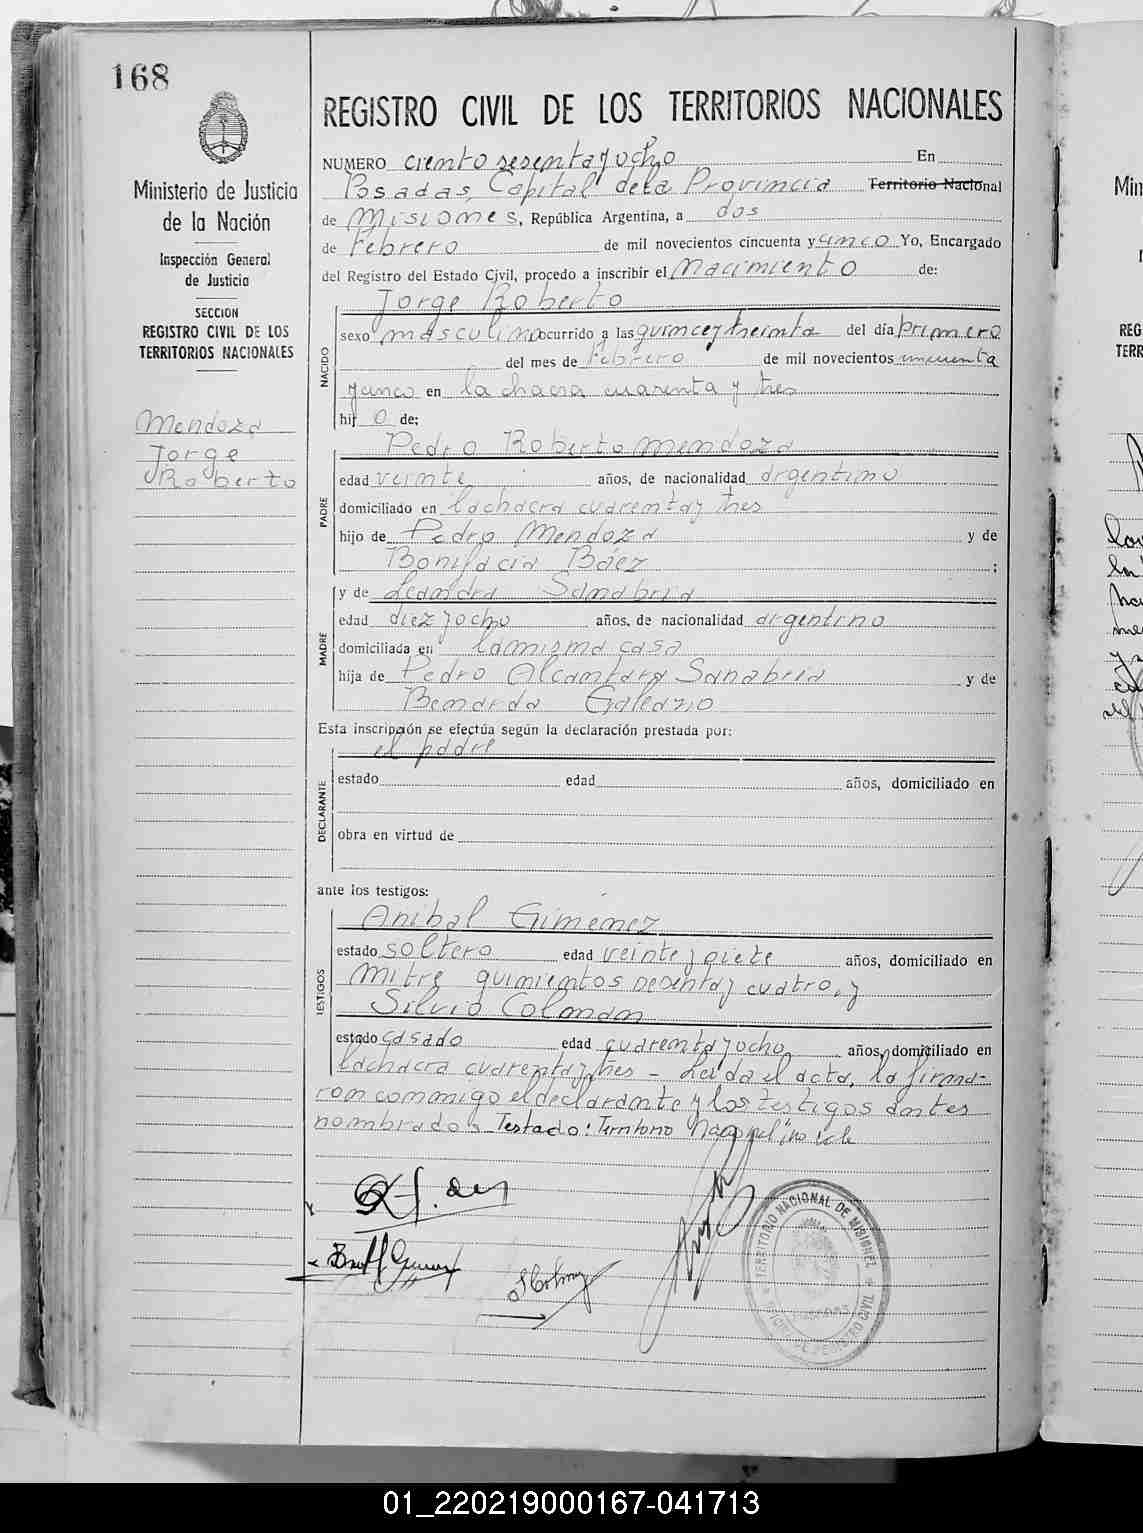 168
Ministerio de Justicia
de la Nación
Inspección General
de Justicia
SECCION
REGISTRO CIVIL DE LOS
TERRITORIOS NACIONALES
Mendoza
Jorge
Roberto
REGISTRO CIVIL DE LOS TERRITORIOS NACIONALES
NUMERO ciento sesenta y ocho En
Posadas, Capital de la Provincia Territorio Nacional
de Misiones, República Argentina, a dos
de Febrero de mil novecientos cincuenta y cinco Yo, Encargado
del Registro del Estado Civil, procedo a inscribir el Nacimiento de:
NACIDO
Jorge Roberto
sexo masculino ocurrido a las quince y treinta del día primero
del mes de febrero de mil novecientos cincuenta
y cinco en la chacra cuarenta y tres
hij o de:
PADRE
Pedro Roberto Mendoza
edad veinte años, de nacionalidad argentino
domiciliado en la chacra cuarenta y tres
hijo de Pedro Mendoza y de
Bonifacia Báez ;
MADRE
y de Leandra Sanabria
edad diez y ocho años, de nacionalidad argentino
domiciliada en la misma casa
hija de Pedro Alcantara Sanabria y de
Bernarda Galeano
Esta inscripción se efectúa según la declaración prestada por:
DECLARANTE
el padre
estado edad años, domiciliado en
obra en virtud de
ante los testigos:
TESTIGOS
Anibal Giménez
estado soltero edad veinte y siete años, domiciliado en
Mitre quinientos sesenta y cuatro, y
Silvio Colman
estado casado edad cuarenta y ocho años, domiciliado en
la chacra cuarenta y tres - Leida el acta, la firma-
ron conmigo el declarante y los testigos antes
nombrados. Testado: "Territorio Nacional" no vale
TERRITORIO NACIONAL DE MISIONES
REGISTRO CIVIL
01_220219000167-041713